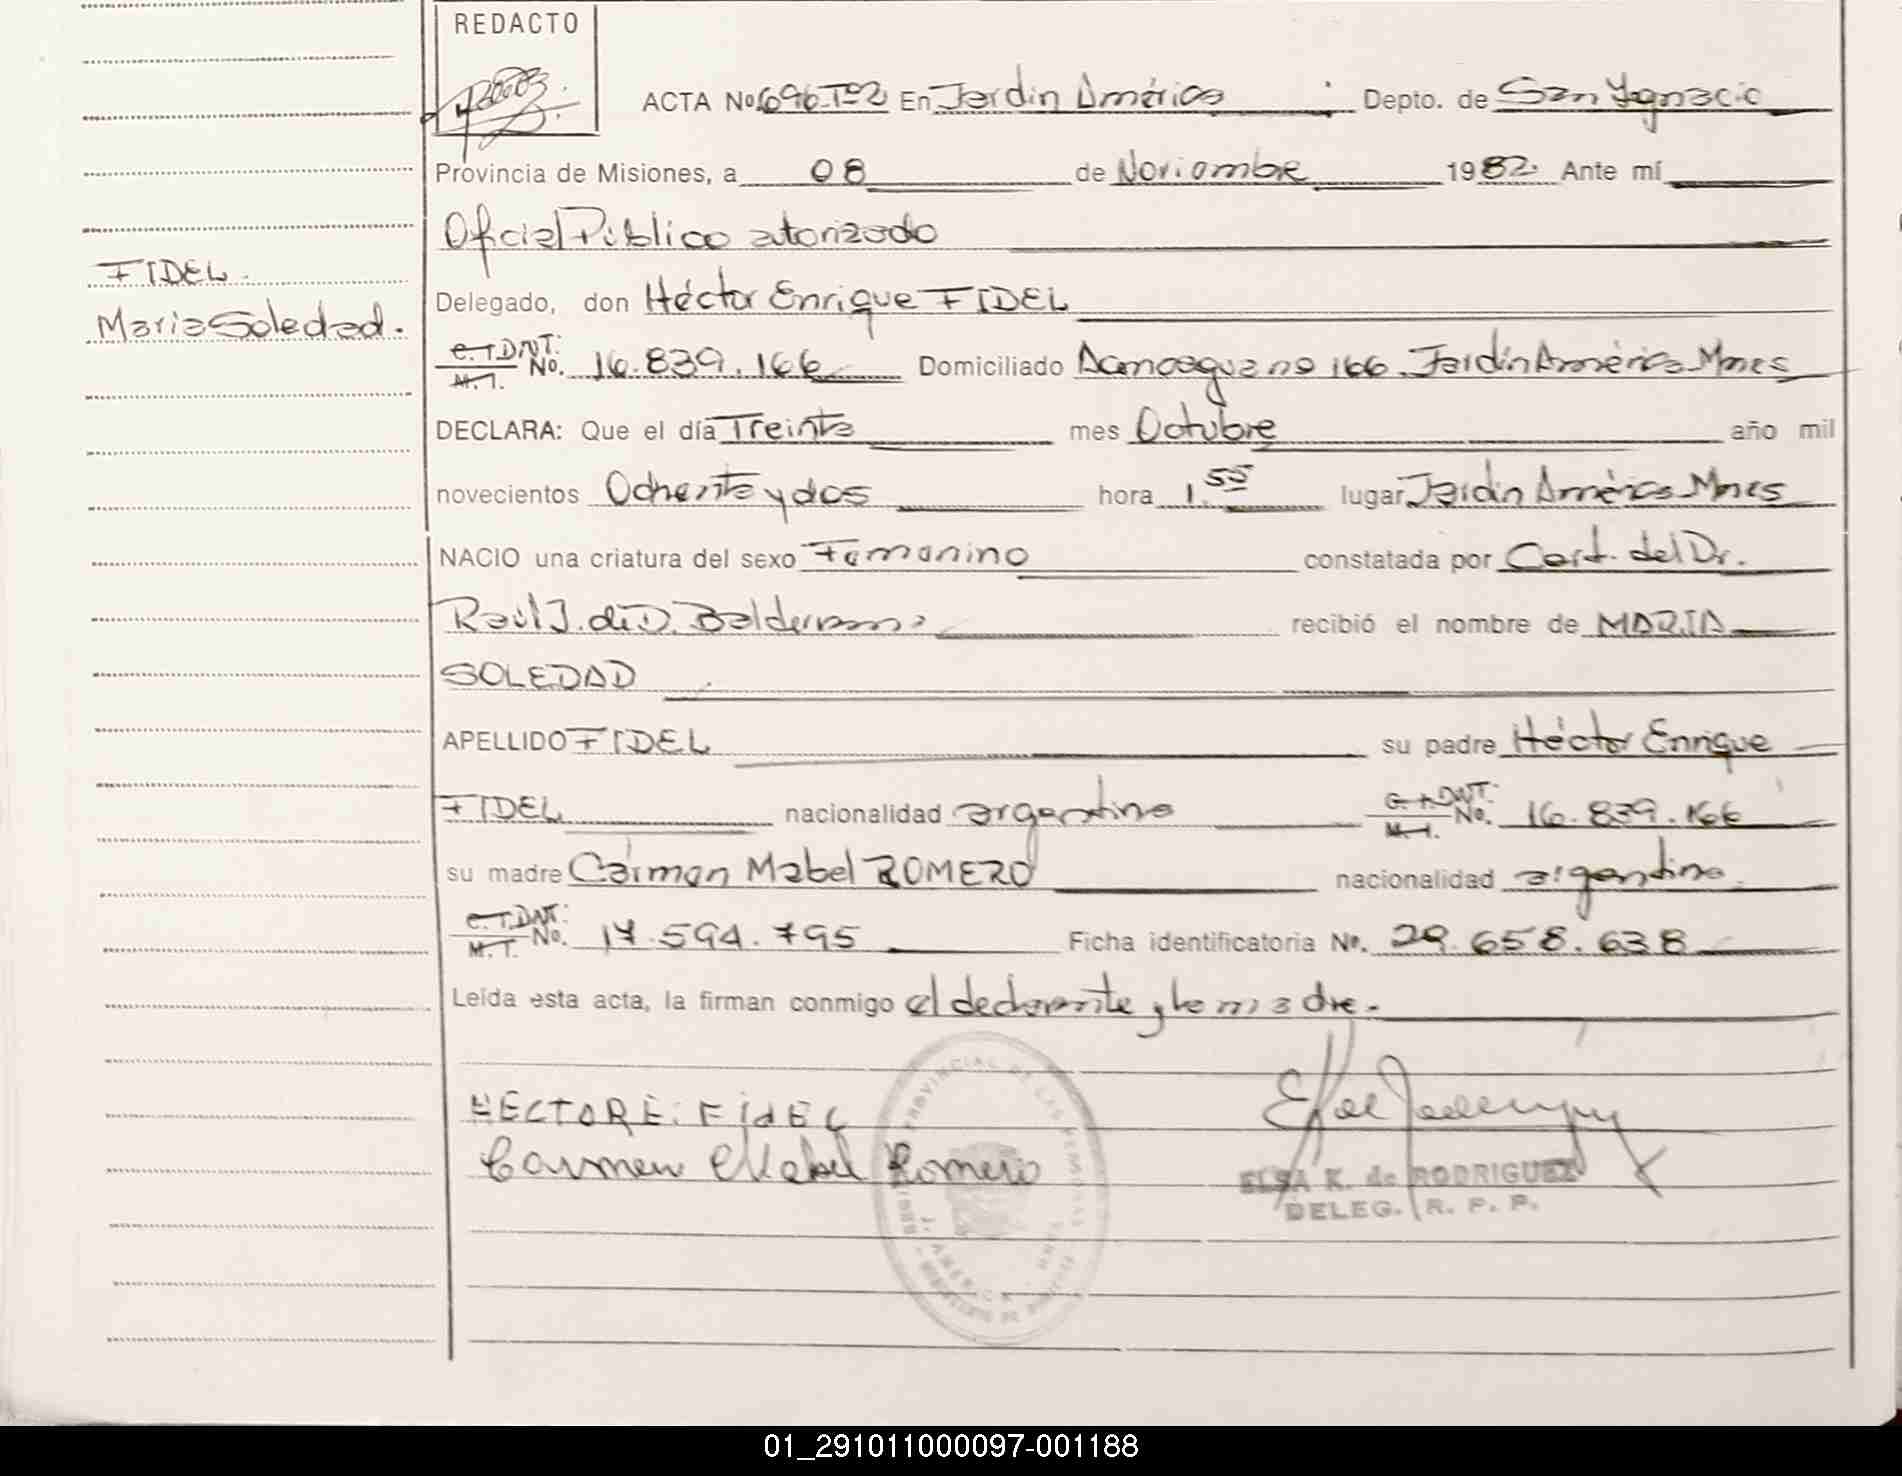 REDACTO
ACTA No 696 Tº2 En Jardín América Depto. de San Ygnacio
Provincia de Misiones, a 08 de Noviembre 1982. Ante mí
Oficial Público autorizado
FIDEL.
Delegado, don Héctor Enrique FIDEL
María Soledad.
C. I. DNI. No. M. I. 16.839.166 Domiciliado 166, Jardín América Mnes
DECLARA: Que el día Treinta mes Octubre año mil
novecientos Ochenta y dos hora 1.55 lugar Jardín América Mnes
NACIO una criatura del sexo Femenino constatada por Cert. del Dr.
Raúl J. de D. Balderrama recibió el nombre de MARIA
SOLEDAD
APELLIDO FIDEL su padre Héctor Enrique
FIDEL nacionalidad argentina C. I. DNI. No. M. I. 16.839.166
su madre Carmen Mabel ROMERO nacionalidad argentina
C. I. DNI. No. M. I. 17.594.795 Ficha identificatoria No. 29.658.638
Leída esta acta, la firman conmigo el declarante y la madre.
HECTOR E. FidEL
Carmen Mabel Romero
ELSA K. de RODRIGUEZ
DELEG. R. P. P.
PROVINCIAL DE LAS PERSONAS
J. AMERICA
01_291011000097-001188